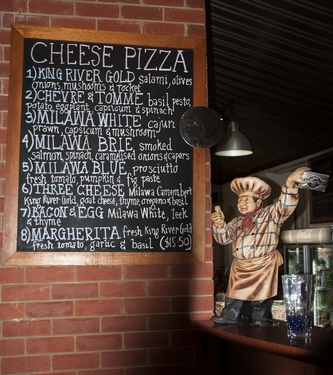 CHEESE PIZZA
1) KING RIVER GOLD salami, olives
onions, mushrooms & rocket
2) CHEVRE & TOMME basil pesto,
potato, eggplant, capsicum & spinach
3) MILAWA WHITE cajun
prawn, capsicum & mushroom
4) MILAWA BRIE, smoked
salmon, spinach, caramelised onions & capers
5) MILAWA BLUE, prosciutto
fresh tomato, pumpkin & fig paste
6) THREE CHEESE Milawa Camembert
King River Gold, goat cheese, thyme, oregano & basil
7) BACON & EGG Milawa White, leek
& thyme
8) MARGHERITA fresh King River Gold
fresh tomato, garlic & basil ($15.50)